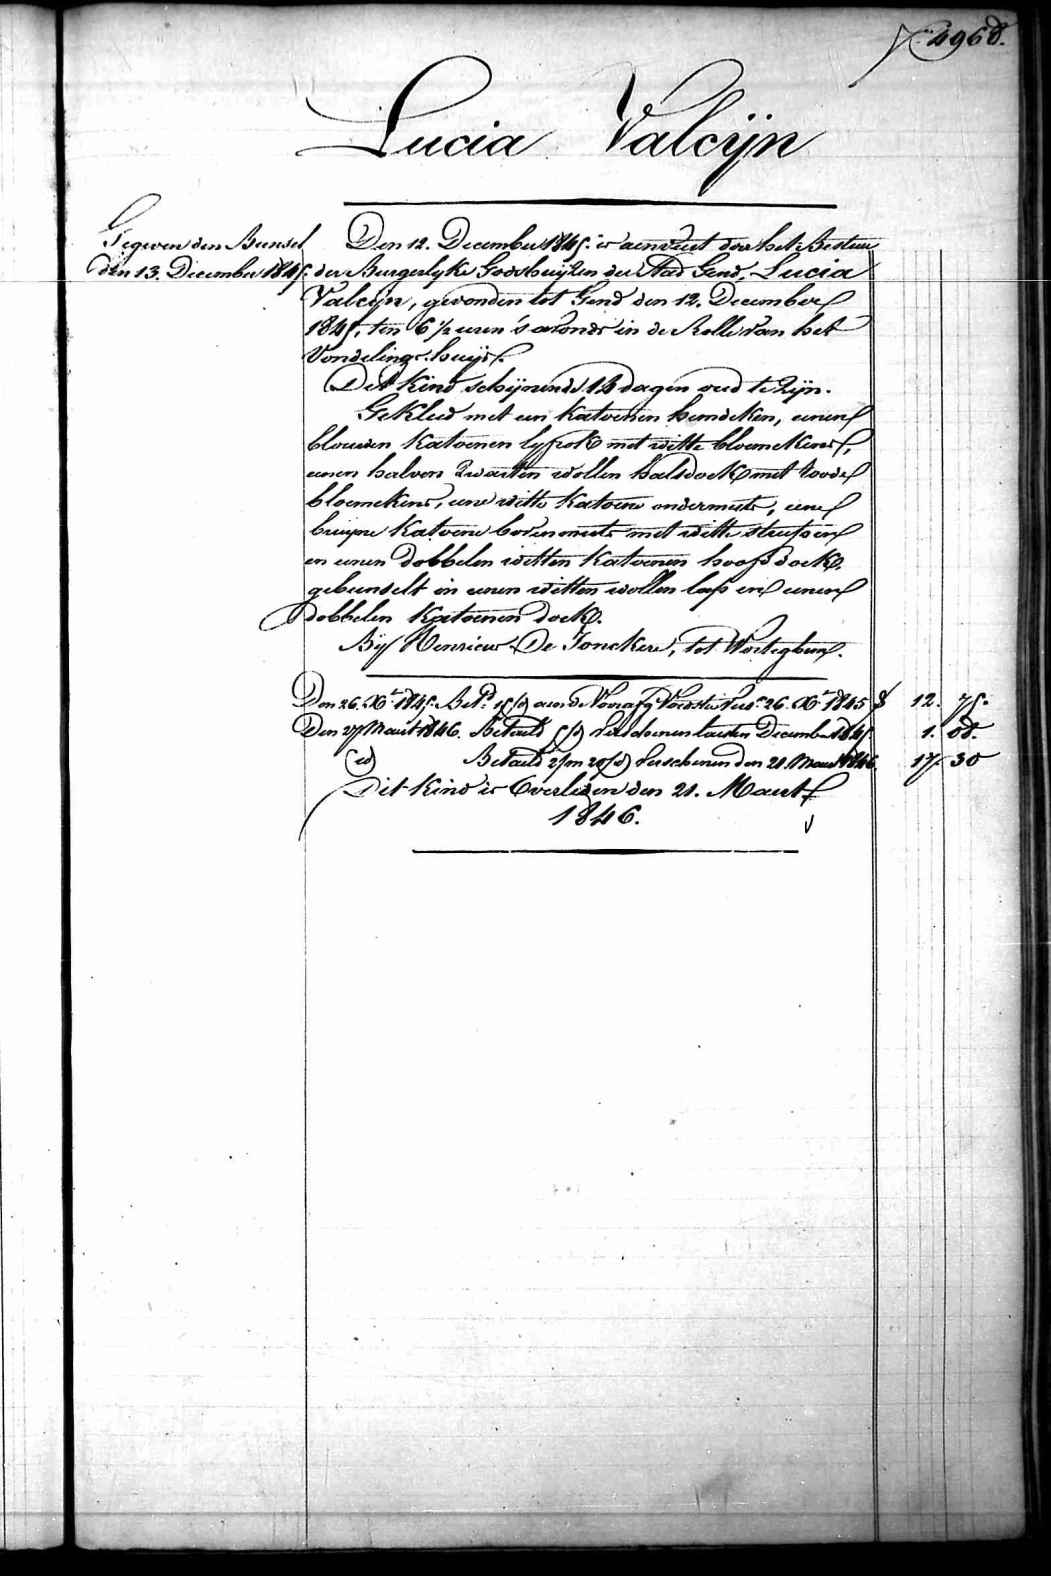 N.º 4968.
Lucia Valcijn
Gegeven den Bunsel
den 13. December 1845.
Den 12. December 1845. is aenveert door het Bestuur
der Burgerlyke Godshuijzen der Stad Gend, Lucia
Valcijn, gevonden tot Gend den 12. December
1845, ten 6 1/2 uren 's avonds in de Rolle van het
Vondelings-huijs.
Dit Kind schijnende 14 dagen oud te zijn.
Gekleed met een katoenen hemdeken, eenen
blauwen katoenen lyfrok met witte bloemekens,
eenen halven zwarten wollen halsdoek met roode
bloemekens, eene witte katoene ondermuts, eene
bruijne katoene bovenmuts met witte streepen
en eenen dobbelen witten katoenen hoofddoek.
gebunselt in eenen witten wollen lap en eenen
dobbelen katoenen doek.
Bij Henricus De Jonckere, tot Worteghem.
Den 26. Xb. 1845. Bet.d aen de 26. Xb. 1845 12. 75.
Den 27 Maert 1846. Betaeld verschenen laesten December 1845. 1. 08.
(id) Betaeld 2/m 20/d verschenen den 21. Maert 1846. 17. 30
Dit kind is Overleden den 21. Maert
1846.